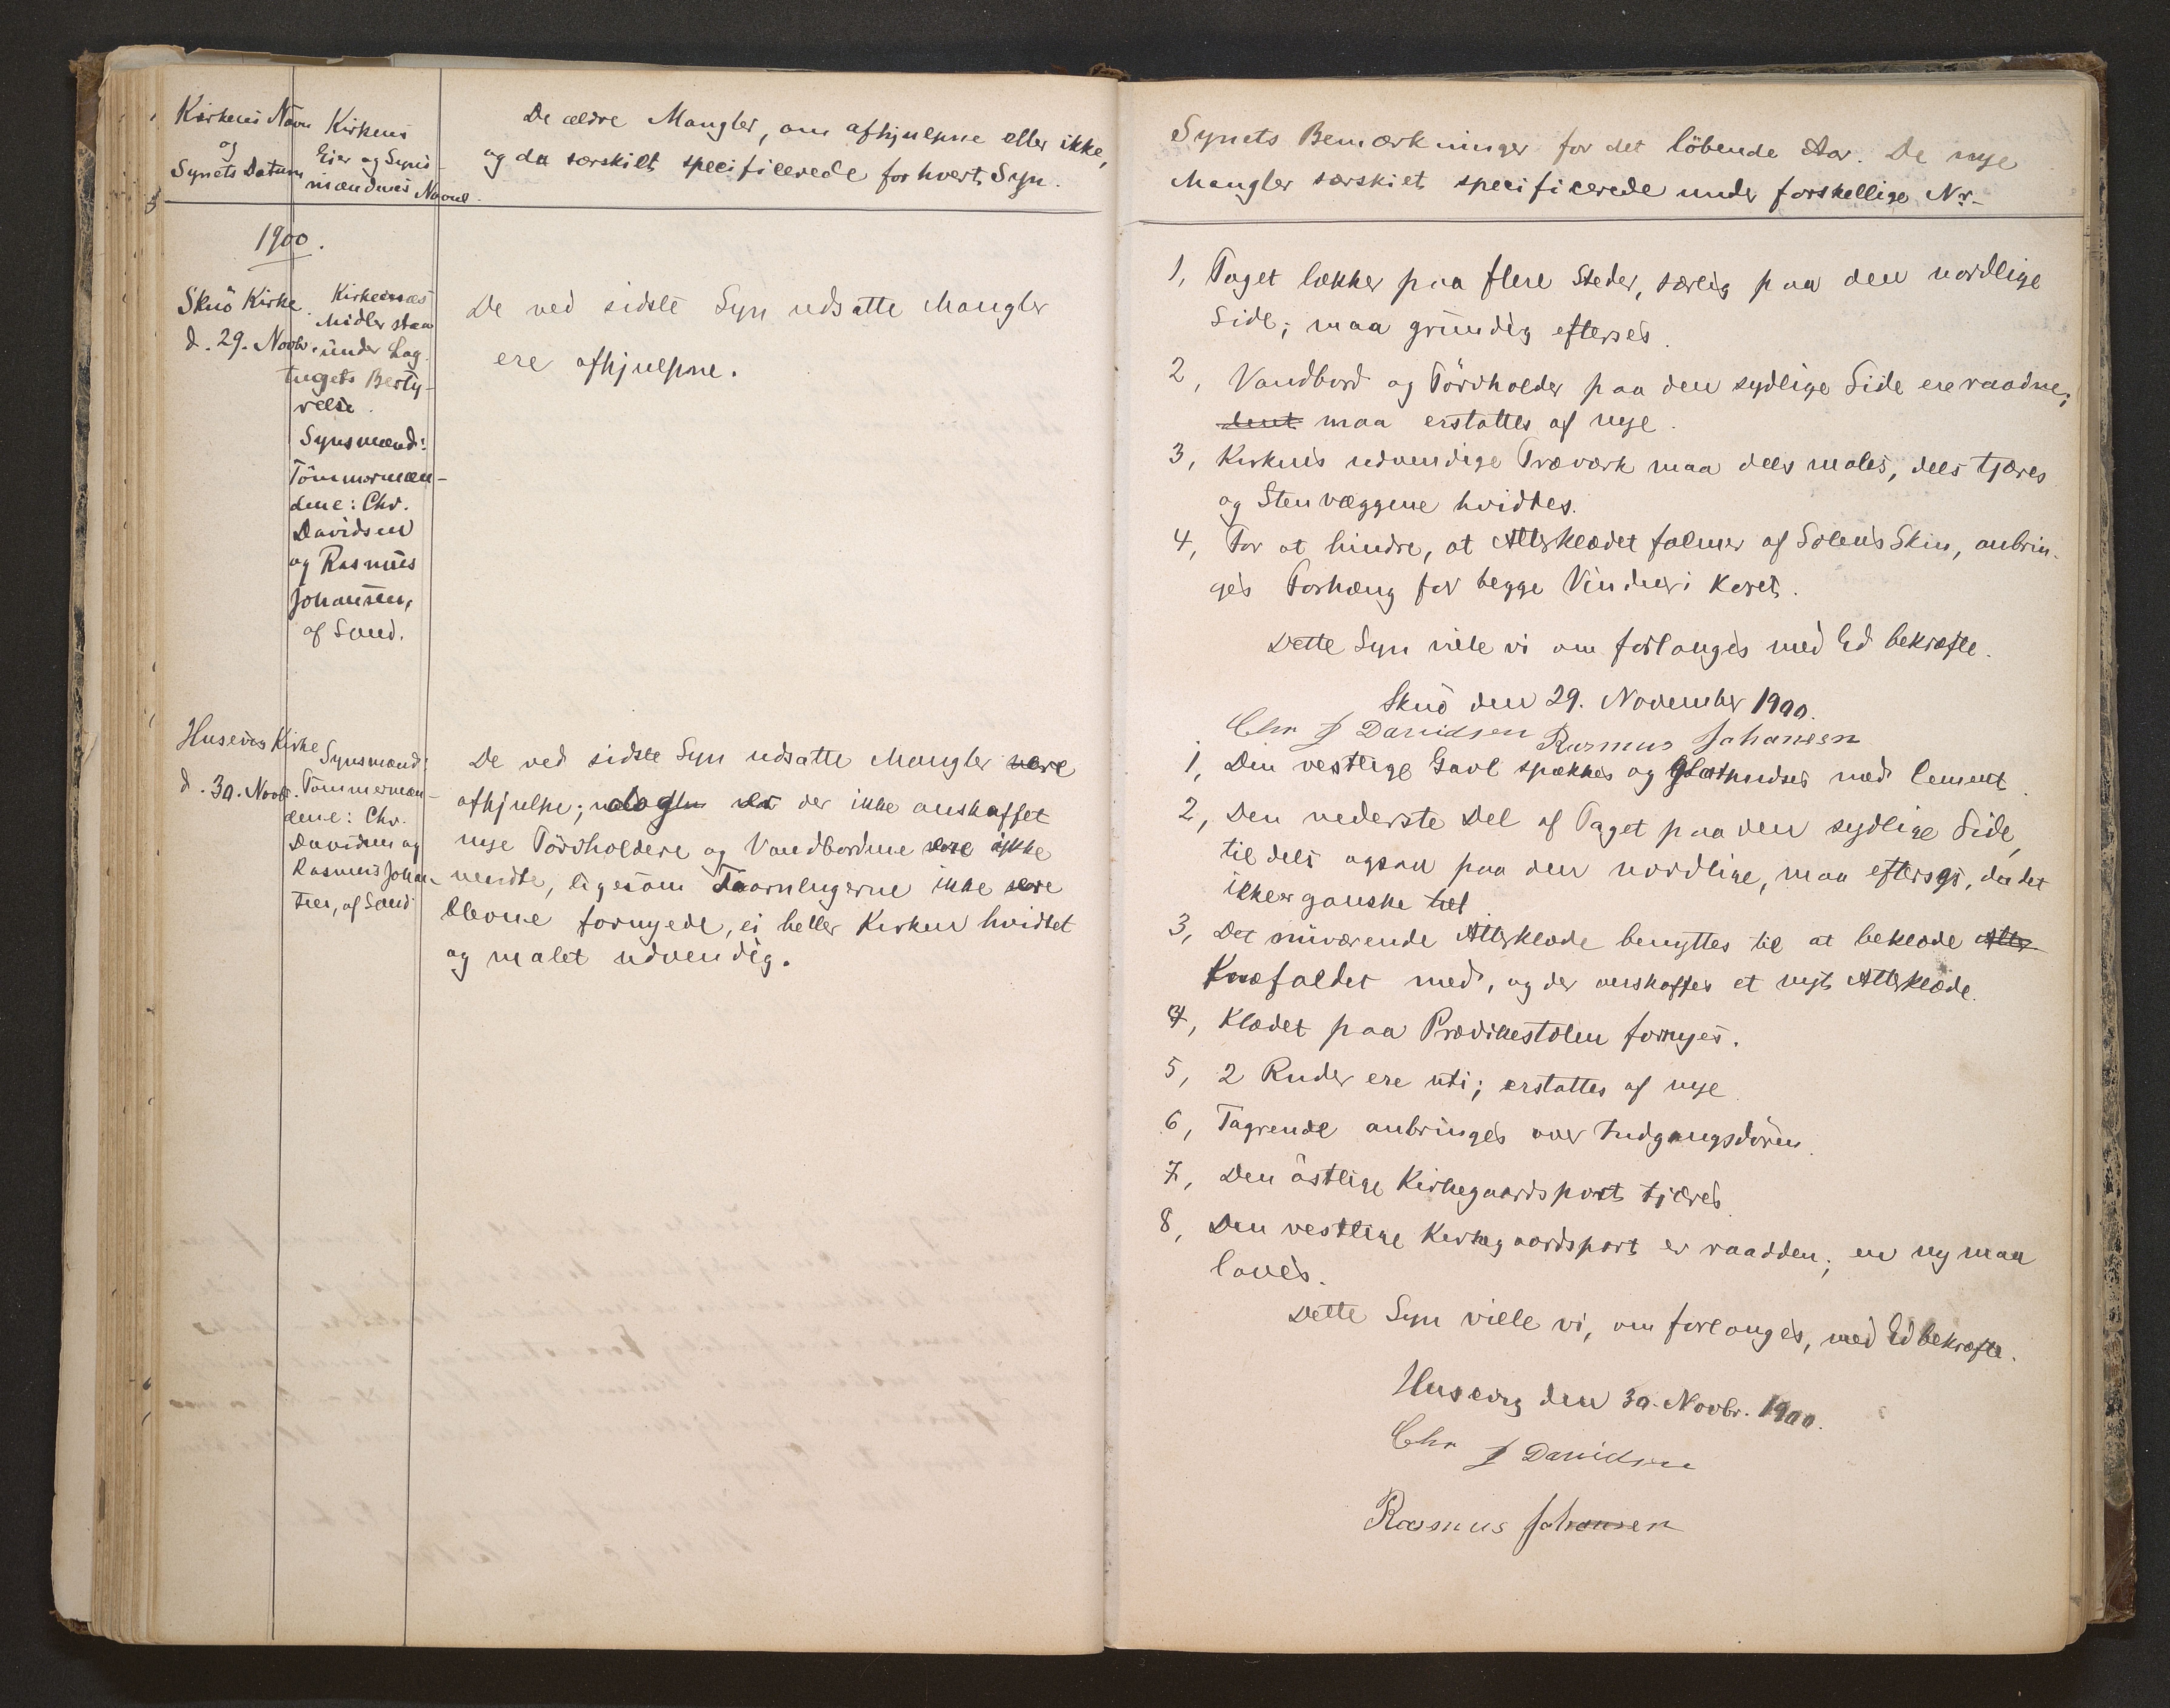 Kirkens Navn
og
Synets Datum
Kirkens
Eier og Syns-
mændenes Navne
De ældre Mangler, om afhjulpne eller ikke,
og da særskilt specificerede for hvert Syn.
1900.
Skuö Kirke
d. 29. Novbr.
Kirkernes
Midler staa
under Lag-
tingets Besty-
relse.
Synsmænd:
Tömmermæn-
dene: Chr.
Davidsen
og Rasmus
Johansen,
af Sand.
De ved sidste Syn udsatte Mangler
ere afhjulpne.
Husevig Kirke
d. 30. Novbr.
Synsmænd:
Tömmermæn-
dene: Chr.
Davidsen og
Rasmus Johan-
sen, af Sand
De ved sidste Syn udsatte Mangler vare
afhjulpne; dog var der ikke anskaffet
nye Törvholdere og Vandbordene vare ikke
vendte, ligesom Taarnlugerne ikke vare
blevne fornyede, ei heller Kirken hvidtet
og malet udvendig.
Synets Bemærkninger for det löbende Aar. De nye
Mangler særskilt specificerede under forskellige Nr.
1, Taget lækker paa flere Steder, særlig paa den nordlige
Side; maa grundig efterses.
2, Vandbord og Törvholder paa den sydlige Side ere raadne;
maa erstattes af nye.
3, Kirkens udvendige Træværk maa dels males, dels tjæres
og Stenvæggene hvidtes.
4, For at hindre, at Alterklædet falmer af Solens Skin, anbrin-
ges Forhæng for begge Vinduer i Koret.
Dette Syn ville vi om forlanges med Ed bekræfte.
Skuö den 29. November 1900.
Chr J Davidsen Rasmus Johansen
1, Den vestlige Gavl spækkes og glatpudses med Cement.
2, Den nederste Del af Taget paa den sydlige Side,
til dels ogsaa paa den nordlige, maa efterses, da det
ikke er ganske tæt
3, Det nuværende Alterklæde benyttes til at beklæde Alter
Knæfaldet med, og der anskaffes et nyt Alterklæde.
4, Klædet paa Prædikestolen fornyes.
5, 2 Ruder ere itu; erstattes af nye.
6, Tagrende anbringes over Indgangsdören.
7, Den östlige Kirkegaardsport tjæres.
8, Den vestlige Kirkegaardsport er raadden; en ny maa
laves.
Dette Syn ville vi, om forlanges, med Ed bekræfte.
Husevig den 30. Novbr. 1900.
Chr J Davidsen
Rasmus Johansen